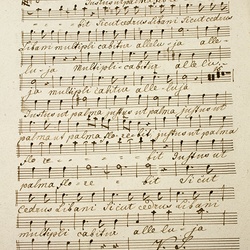 Justus ut palma flore
bit Sicut cedrus Libani Sicut cedrus
Libani multipli cabitur allelu - ja alle
lu - ja multipli - cabitur alle lu
ja multipli cabitur allelu ja
Justus ut palma justus ut palma justus ut
palma ut palma flo re - bit justus ut palma
flo - re - - - bit Justus ut
palma flo - re - bit Sicut
Cedrus Libani Sicut cedrus Libani
multipli cabitur alleluja alle